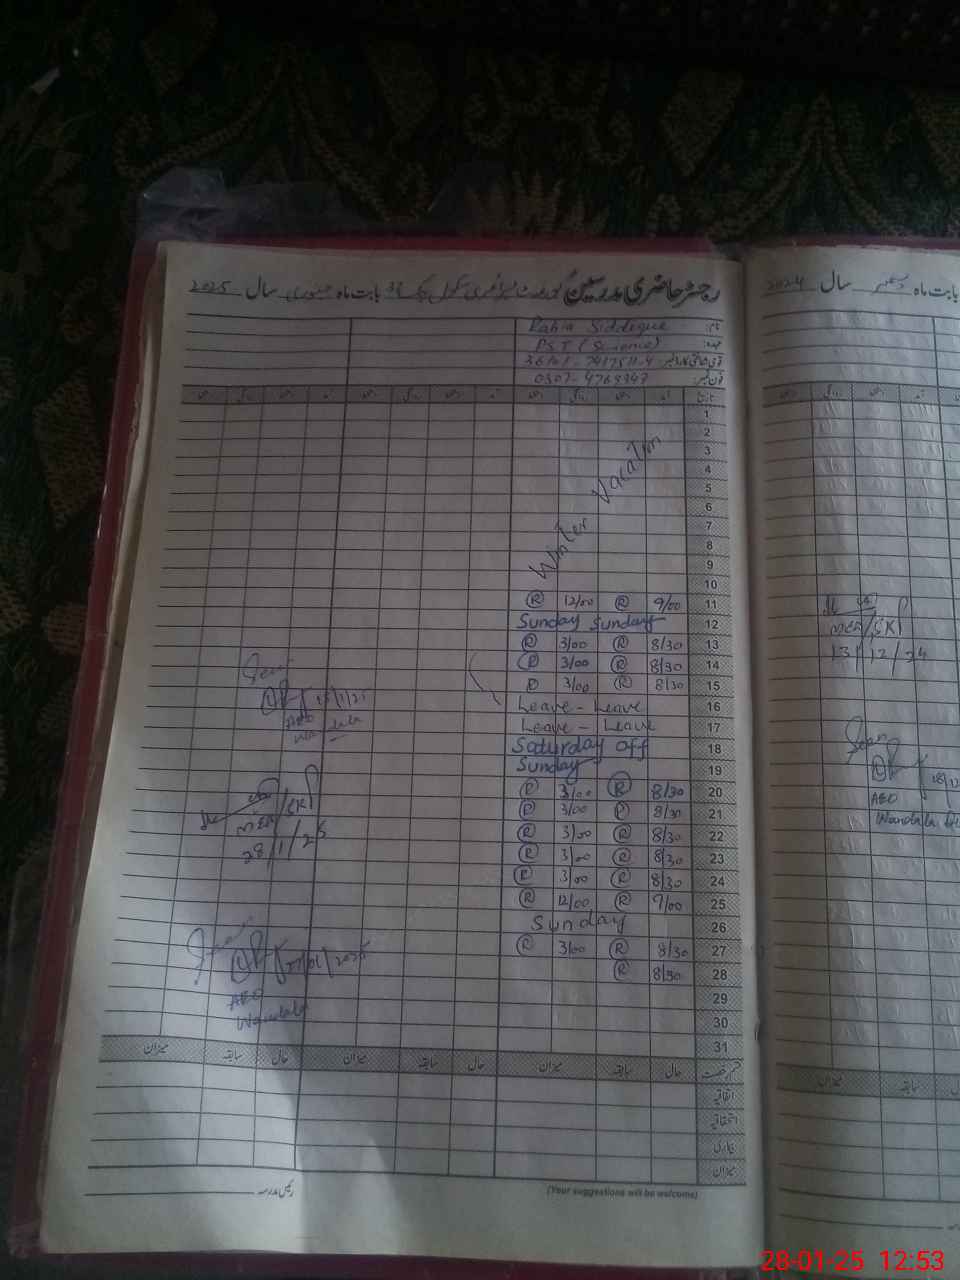 رجسٹر حاضری مدرسین گورنمنٹ پرائمری سکول چک 36 بابت ماہ جنوری سال 2025
نام: Rabia Siddique
عہدہ: PST (Science)
قومی شناختی کارڈ نمبر:
فون نمبر: 0307-4769347
تاریخ آمد دستخط روانگی دستخط آمد دستخط روانگی دستخط آمد دستخط روانگی دستخط
1
2
3
4
5
6
7
8
9
10
Winter Vacation
11 9/00 R 12/00 R
12 Sunday Sunday
13 8/30 R 3/00 R
14 8/30 R 3/00 R
15 8/30 R 3/00 R
16 Leave - Leave
17 Leave - Leave
18 Saturday off
19 Sunday
20 8/30 R 3/00 R
21 8/30 R 3/00 R
22 8/30 R 3/00 R
23 8/30 R 3/00 R
24 8/30 R 3/00 R
25 9/00 R 12/00 R
26 Sunday
27 8/30 R 3/00 R
28 8/30 R
29
30
31
Seen
AEO
MEA/SKP
28/1/25
Seen
27/01/2025
AEO
Wandala
قسم رخصت حال سابقہ میزان حال سابقہ میزان حال سابقہ میزان
اتفاقیہ
استحقاقیہ
بیماری
میزان
(Your suggestions will be welcome)
رئیس مدرسہ
بابت ماہ دسمبر سال 2024
MEA/SKP
13/12/24
Seen
AEO
Wandala
میزان سابقہ
28-01-25 12:53